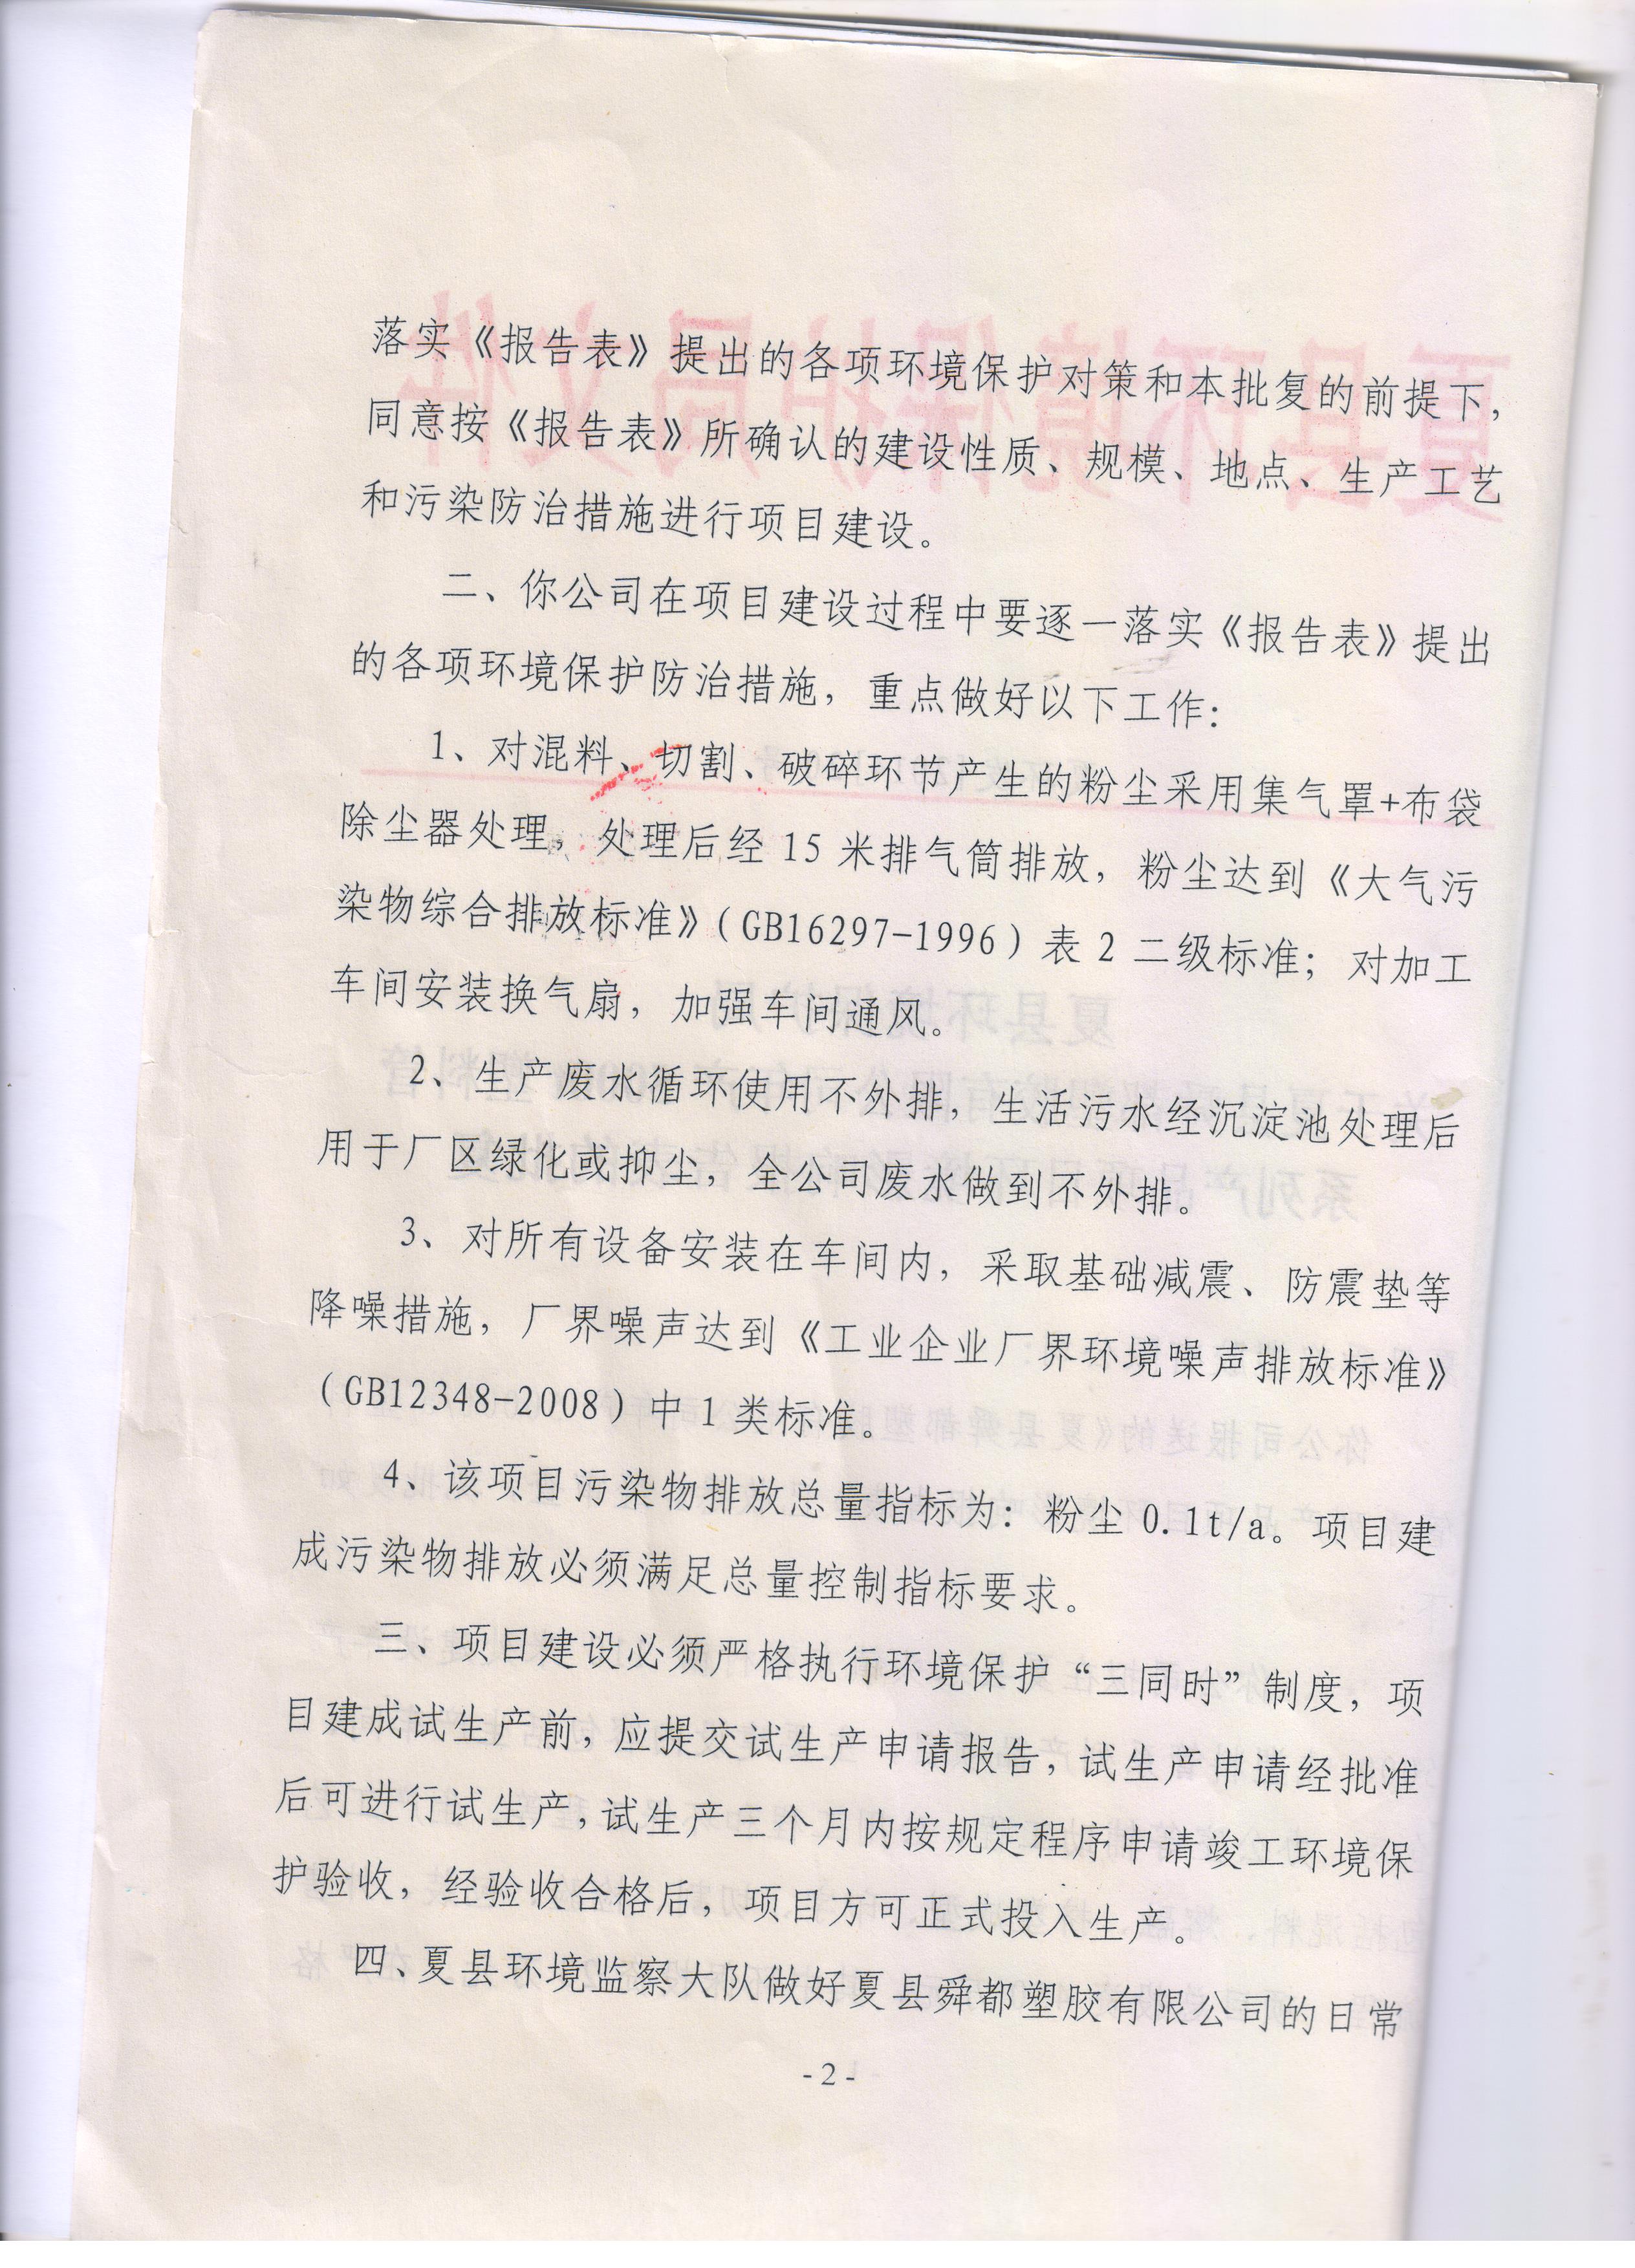 落实《报告表》提出的各项环境保护对策和本批复的前提下，
同意按《报告表》所确认的建设性质、规模、地点、生产工艺
和污染防治措施进行项目建设。
二、你公司在项目建设过程中要逐一落实《报告表》提出
的各项环境保护防治措施，重点做好以下工作：
1、对混料、切割、破碎环节产生的粉尘采用集气罩+布袋
除尘器处理，处理后经 15 米排气筒排放，粉尘达到《大气污
染物综合排放标准》（GB16297-1996）表 2 二级标准；对加工
车间安装换气扇，加强车间通风。
2、生产废水循环使用不外排，生活污水经沉淀池处理后
用于厂区绿化或抑尘，全公司废水做到不外排。
3、对所有设备安装在车间内，采取基础减震、防震垫等
降噪措施，厂界噪声达到《工业企业厂界环境噪声排放标准》
（GB12348-2008）中 1 类标准。
4、该项目污染物排放总量指标为：粉尘 0.1t/a。项目建
成污染物排放必须满足总量控制指标要求。
三、项目建设必须严格执行环境保护“三同时”制度，项
目建成试生产前，应提交试生产申请报告，试生产申请经批准
后可进行试生产，试生产三个月内按规定程序申请竣工环境保
护验收，经验收合格后，项目方可正式投入生产。
四、夏县环境监察大队做好夏县舜都塑胶有限公司的日常
- 2 -